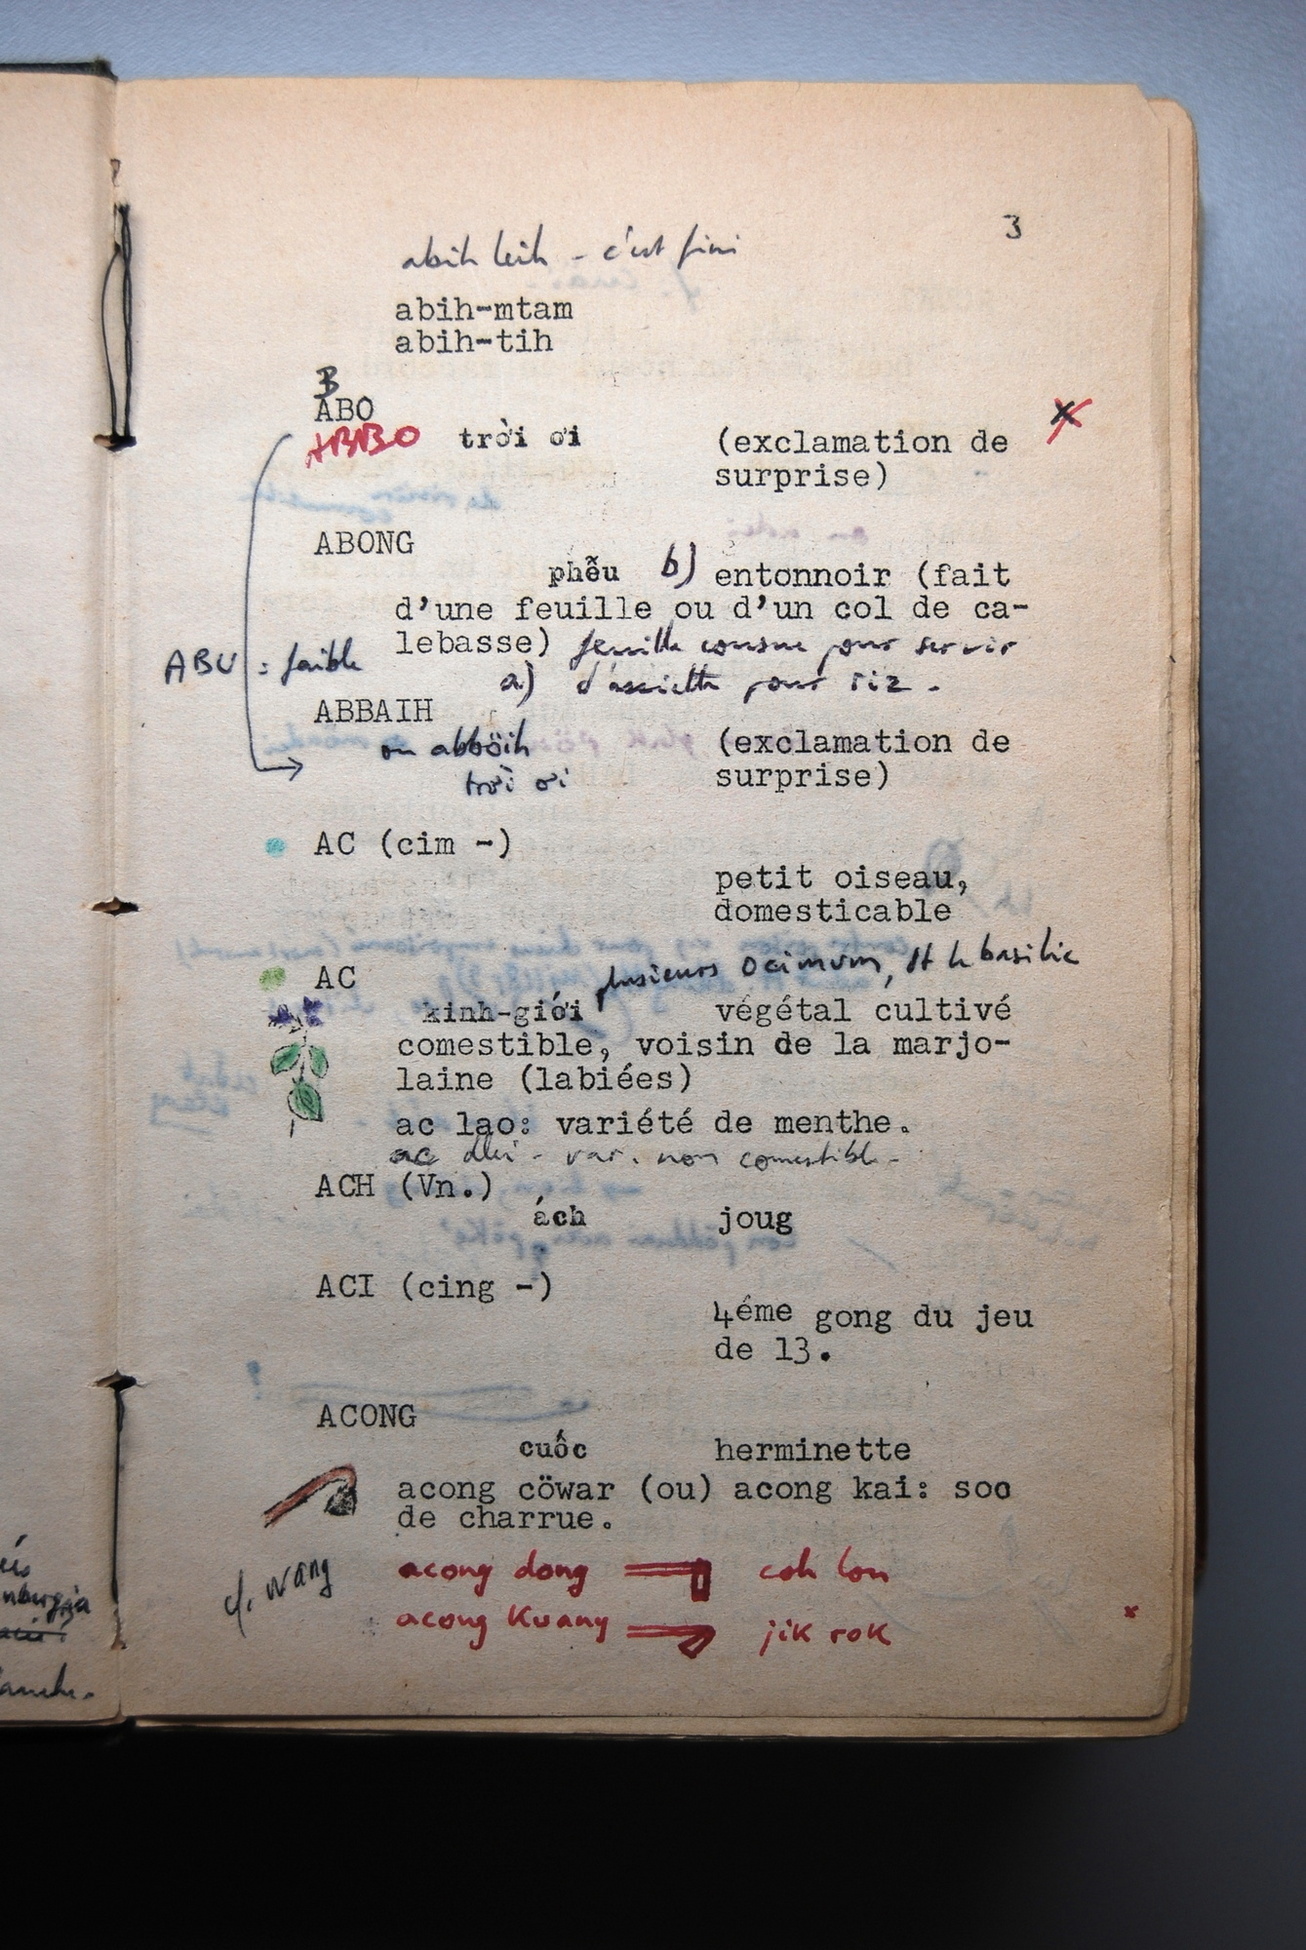 3
abih leih - c'est fini
abih-mtam
abih-tih
B
ABO
ABBO trời ơi (exclamation de
surprise)
ABONG
phễu b) entonnoir (fait
d'une feuille ou d'un col de ca-
lebasse) feuille cousue pour servir
a) d'assiette pour riz.
ABU : faible
ABBAIH
ou abböih (exclamation de
trời ơi surprise)
AC (cim -)
petit oiseau,
domesticable
plusieurs Ocimum, dt le basilic
AC
kinh-giới végétal cultivé
comestible, voisin de la marjo-
laine (labiées)
ac lao: variété de menthe.
ac dlei - var. non comestible -
ACH (Vn.)
ách joug
ACI (cing -)
4éme gong du jeu
de 13.
ACONG
cuốc herminette
acong cöwar (ou) acong kai: soc
de charrue.
cf. wang
acong dong coh lon
acong Kuang jik rok